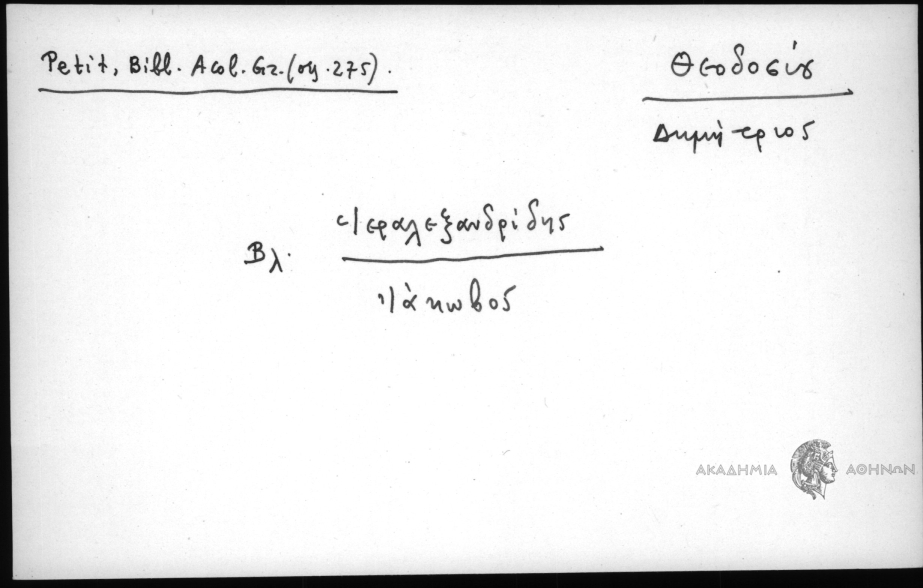 Petit, Bibl. Acol. Gr. (σημ. 275).
Θεοδοσίου
Δημήτριος
Βλ. Ἱεραλεξανδρίδης
Ἰάκωβος
ΑΚΑΔΗΜΙΑ ΑΘΗΝΩΝ